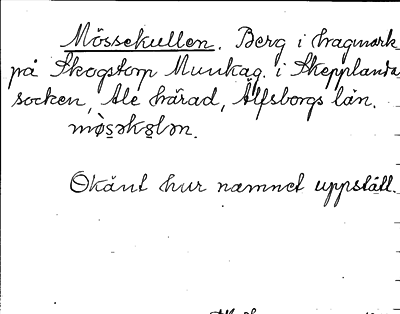 Mössekullen. Berg i hagmark
på Skogstorp Munkäg. i Skepplanda
socken, Ale härad, Älfsborgs län.
mòsəkələn.
Okänt hur namnet uppstått.